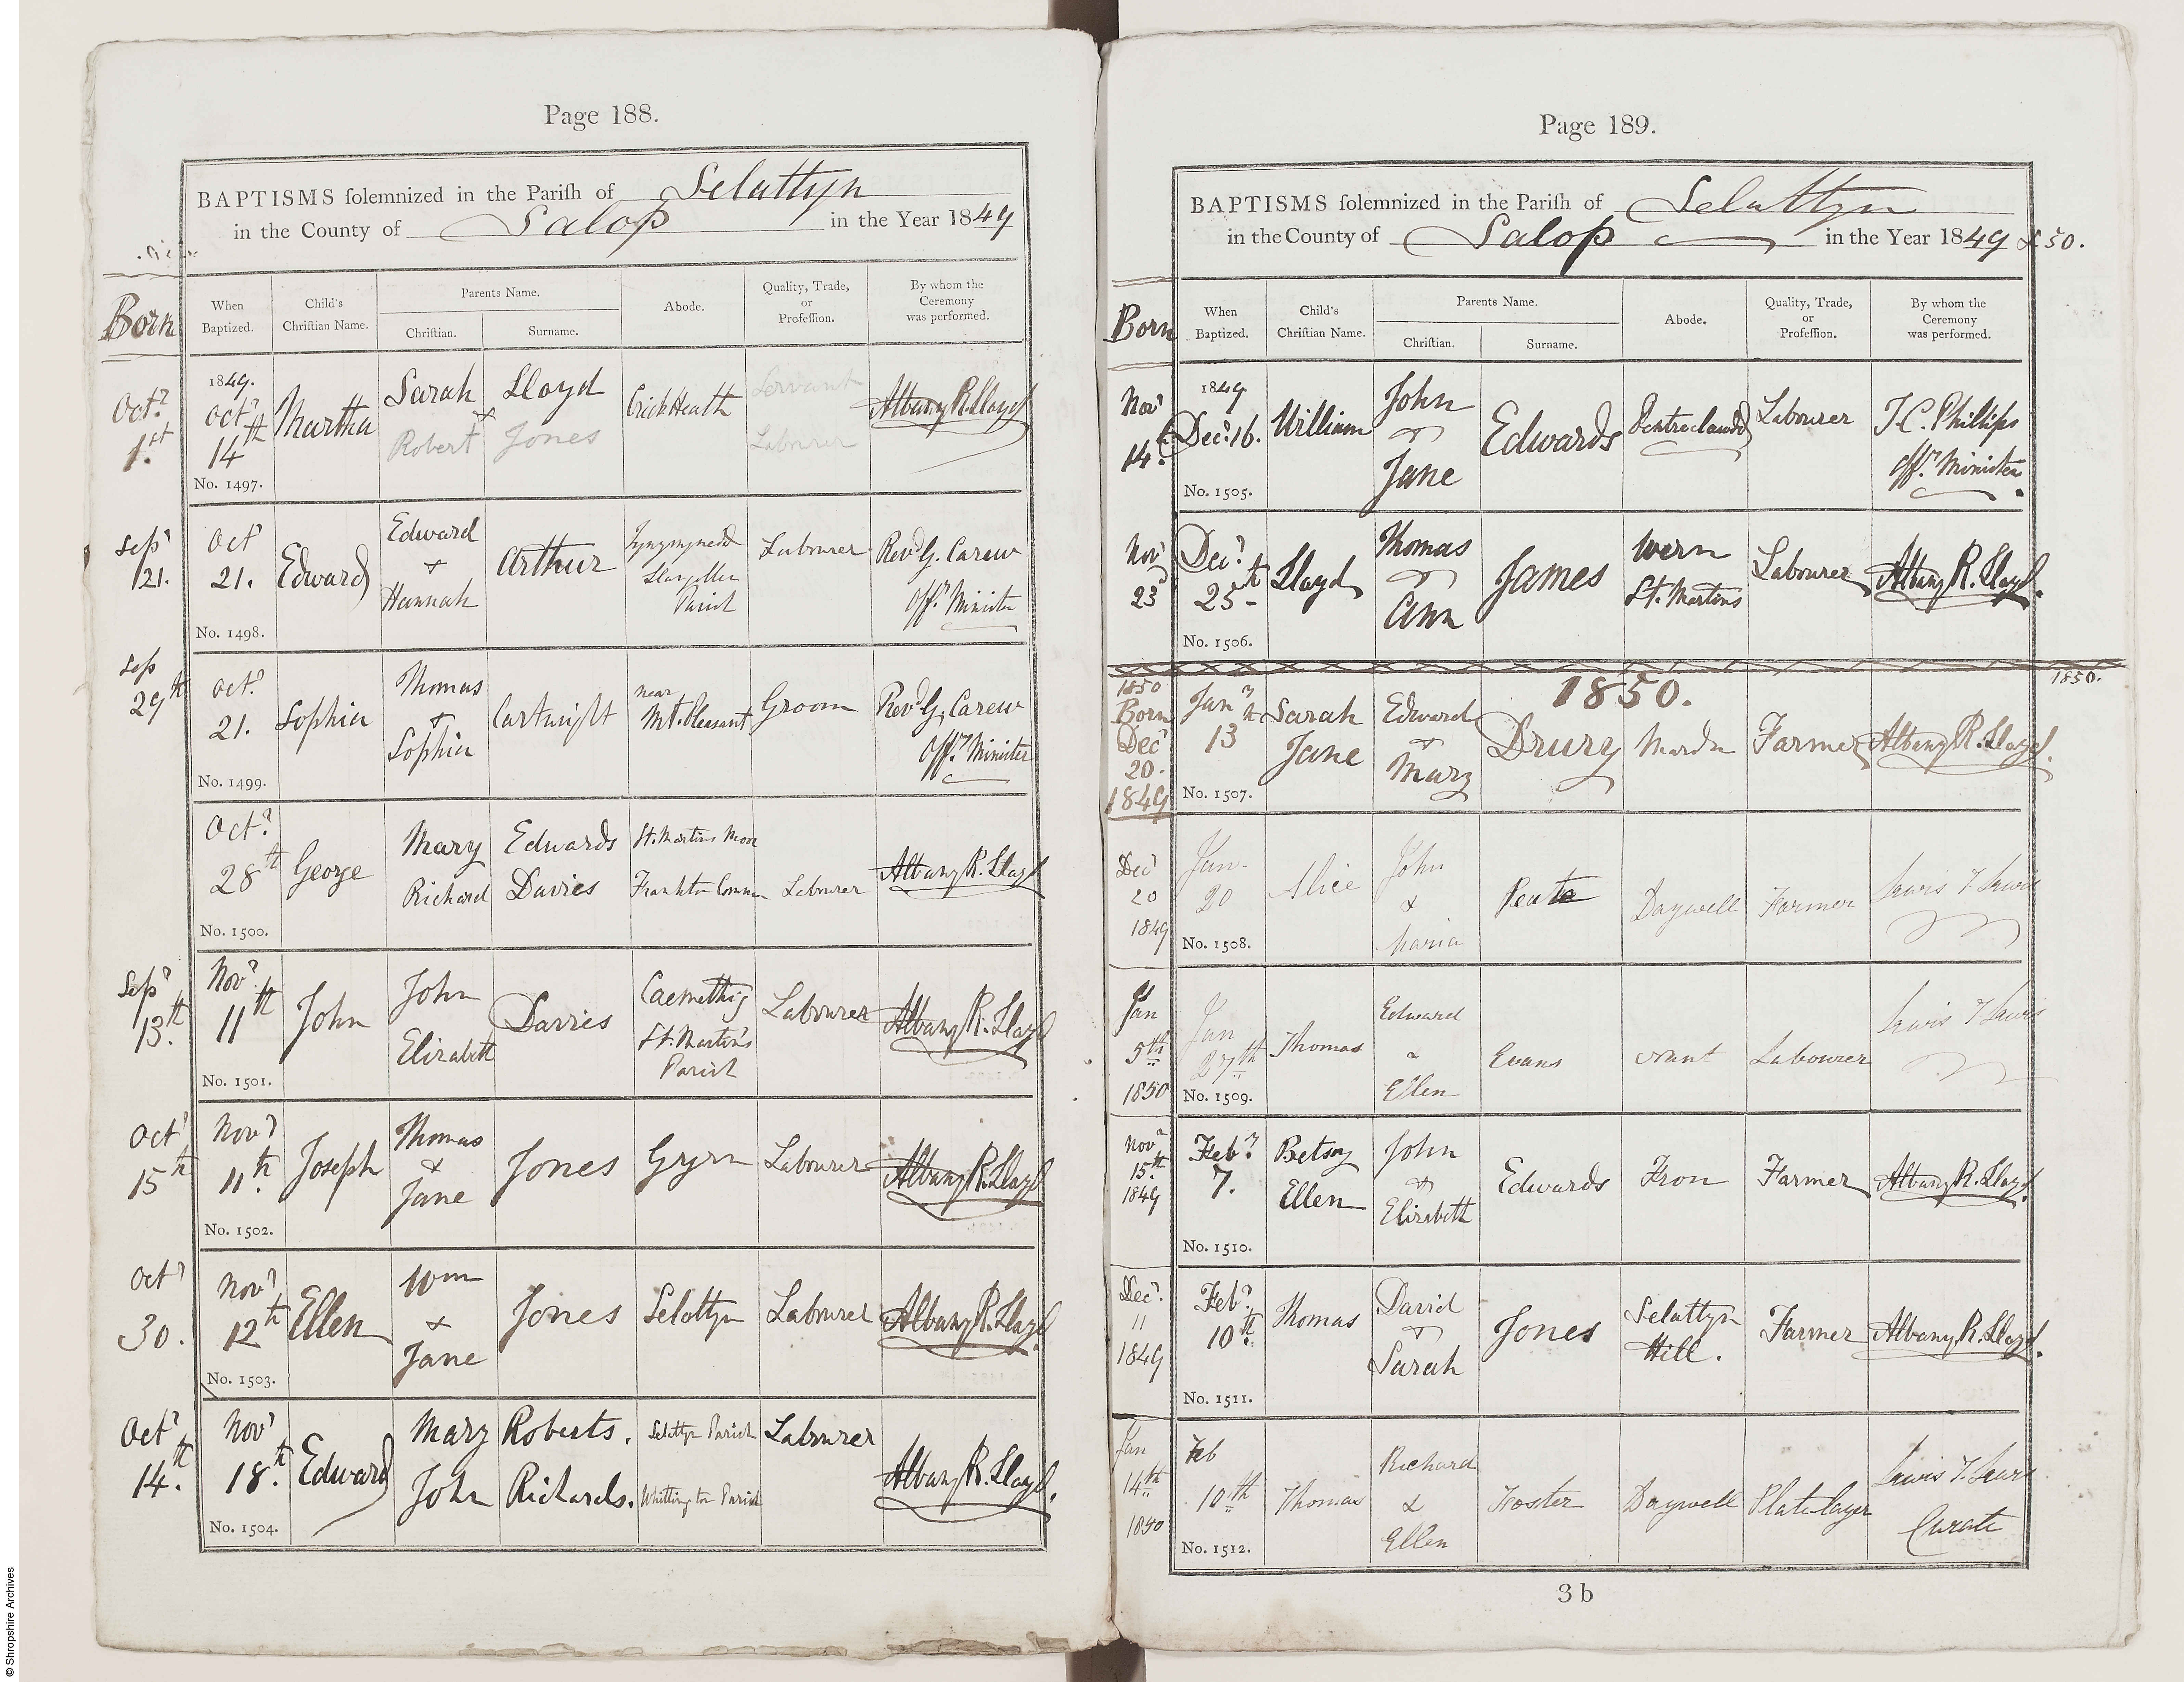 Page 188.
BAPTISMS solemnized in the Parish of Selattyn
in the County of Salop in the Year 1849
Born
When Baptized.
Child's Christian Name.
Parents Name.
Christian.
Surname.
Abode.
Quality, Trade, or Profession.
By whom the Ceremony was performed.
Octr 1st.
1849. Octr 14th
Martha
Sarah Lloyd
& Robert Jones
Crick Heath
Servant
Labourer
Albany R. Lloyd
No. 1497.
Sepr 21.
Octr 21.
Edward
Edward & Hannah
Arthur
Llangollen Parish
Labourer
Revd G. Carew
Offg Minister
No. 1498.
Sep 29th
Octr 21.
Sophia
Thomas & Sophia
Cartwright
near Mt. Pleasant
Groom
Revd G. Carew
Offg Minister
No. 1499.
Octr 28th
George
Mary Edwards
St. Martins Moor
Richard Davies
Frankton Common
Labourer
Albany R. Lloyd
No. 1500.
Sepr 13th.
Novr 11th
John
John
Elizabeth
Davies
St. Martin's Parish
Labourer
Albany R. Lloyd
No. 1501.
Octr 15th
Novr 11th.
Joseph
Thomas & Jane
Jones
Gyrn
Labourer
Albany R. Lloyd
No. 1502.
Octr 30.
Novr 12th
Ellen
Wm & Jane
Jones
Selattyn
Labourer
Albany R. Lloyd.
No. 1503.
Octr 14th.
Novr 18th.
Edward
Mary Roberts.
Selattyn Parish
Labourer
John Richards.
Whittington Parish
Albany R. Lloyd.
No. 1504.
Page 189.
BAPTISMS solemnized in the Parish of Selattyn
in the County of Salop in the Year 1849 & 50.
Born
When Baptized.
Child's Christian Name.
Parents Name.
Christian.
Surname.
Abode.
Quality, Trade, or Profession.
By whom the Ceremony was performed.
Novr 14th.
1849 Decr 16.
William
John & Jane
Edwards
Labourer
T. C. Phillips
Offg Minister.
No. 1505.
Novr 23
Decr 25th
Lloyd
Thomas & Ann
James
Wern
St. Martins
Labourer
Albany R. Lloyd.
No. 1506.
1850.
1850.
1850 Born Decr 20. 1849
Janry 13th
Sarah Jane
Edward & Mary
Drury
Farmer
Albany R. Lloyd.
No. 1507.
Decr 20 1849
Jan. 20
Alice
John & Maria
Peate
Daywell
Farmer
Lewis T Lewis
No. 1508.
Jan 5th 1850
Jan 27th
Thomas
Edward & Ellen
Evans
Labourer
Lewis T Lewis
No. 1509.
Novr 15th 1849
Feby 7.
Betsy Ellen
John & Elizabeth
Edwards
Fron
Farmer
Albany R. Lloyd.
No. 1510.
Decr. 11 1849
Feby 10th.
Thomas
David & Sarah
Jones
Selattyn Hill.
Farmer
Albany R. Lloyd.
No. 1511.
Jan 14th 1850
Feb 10th
Thomas
Richard & Ellen
Foster
Daywell
Platelayer
Lewis T. Lewis
Curate
No. 1512.
3 b
© Shropshire Archives